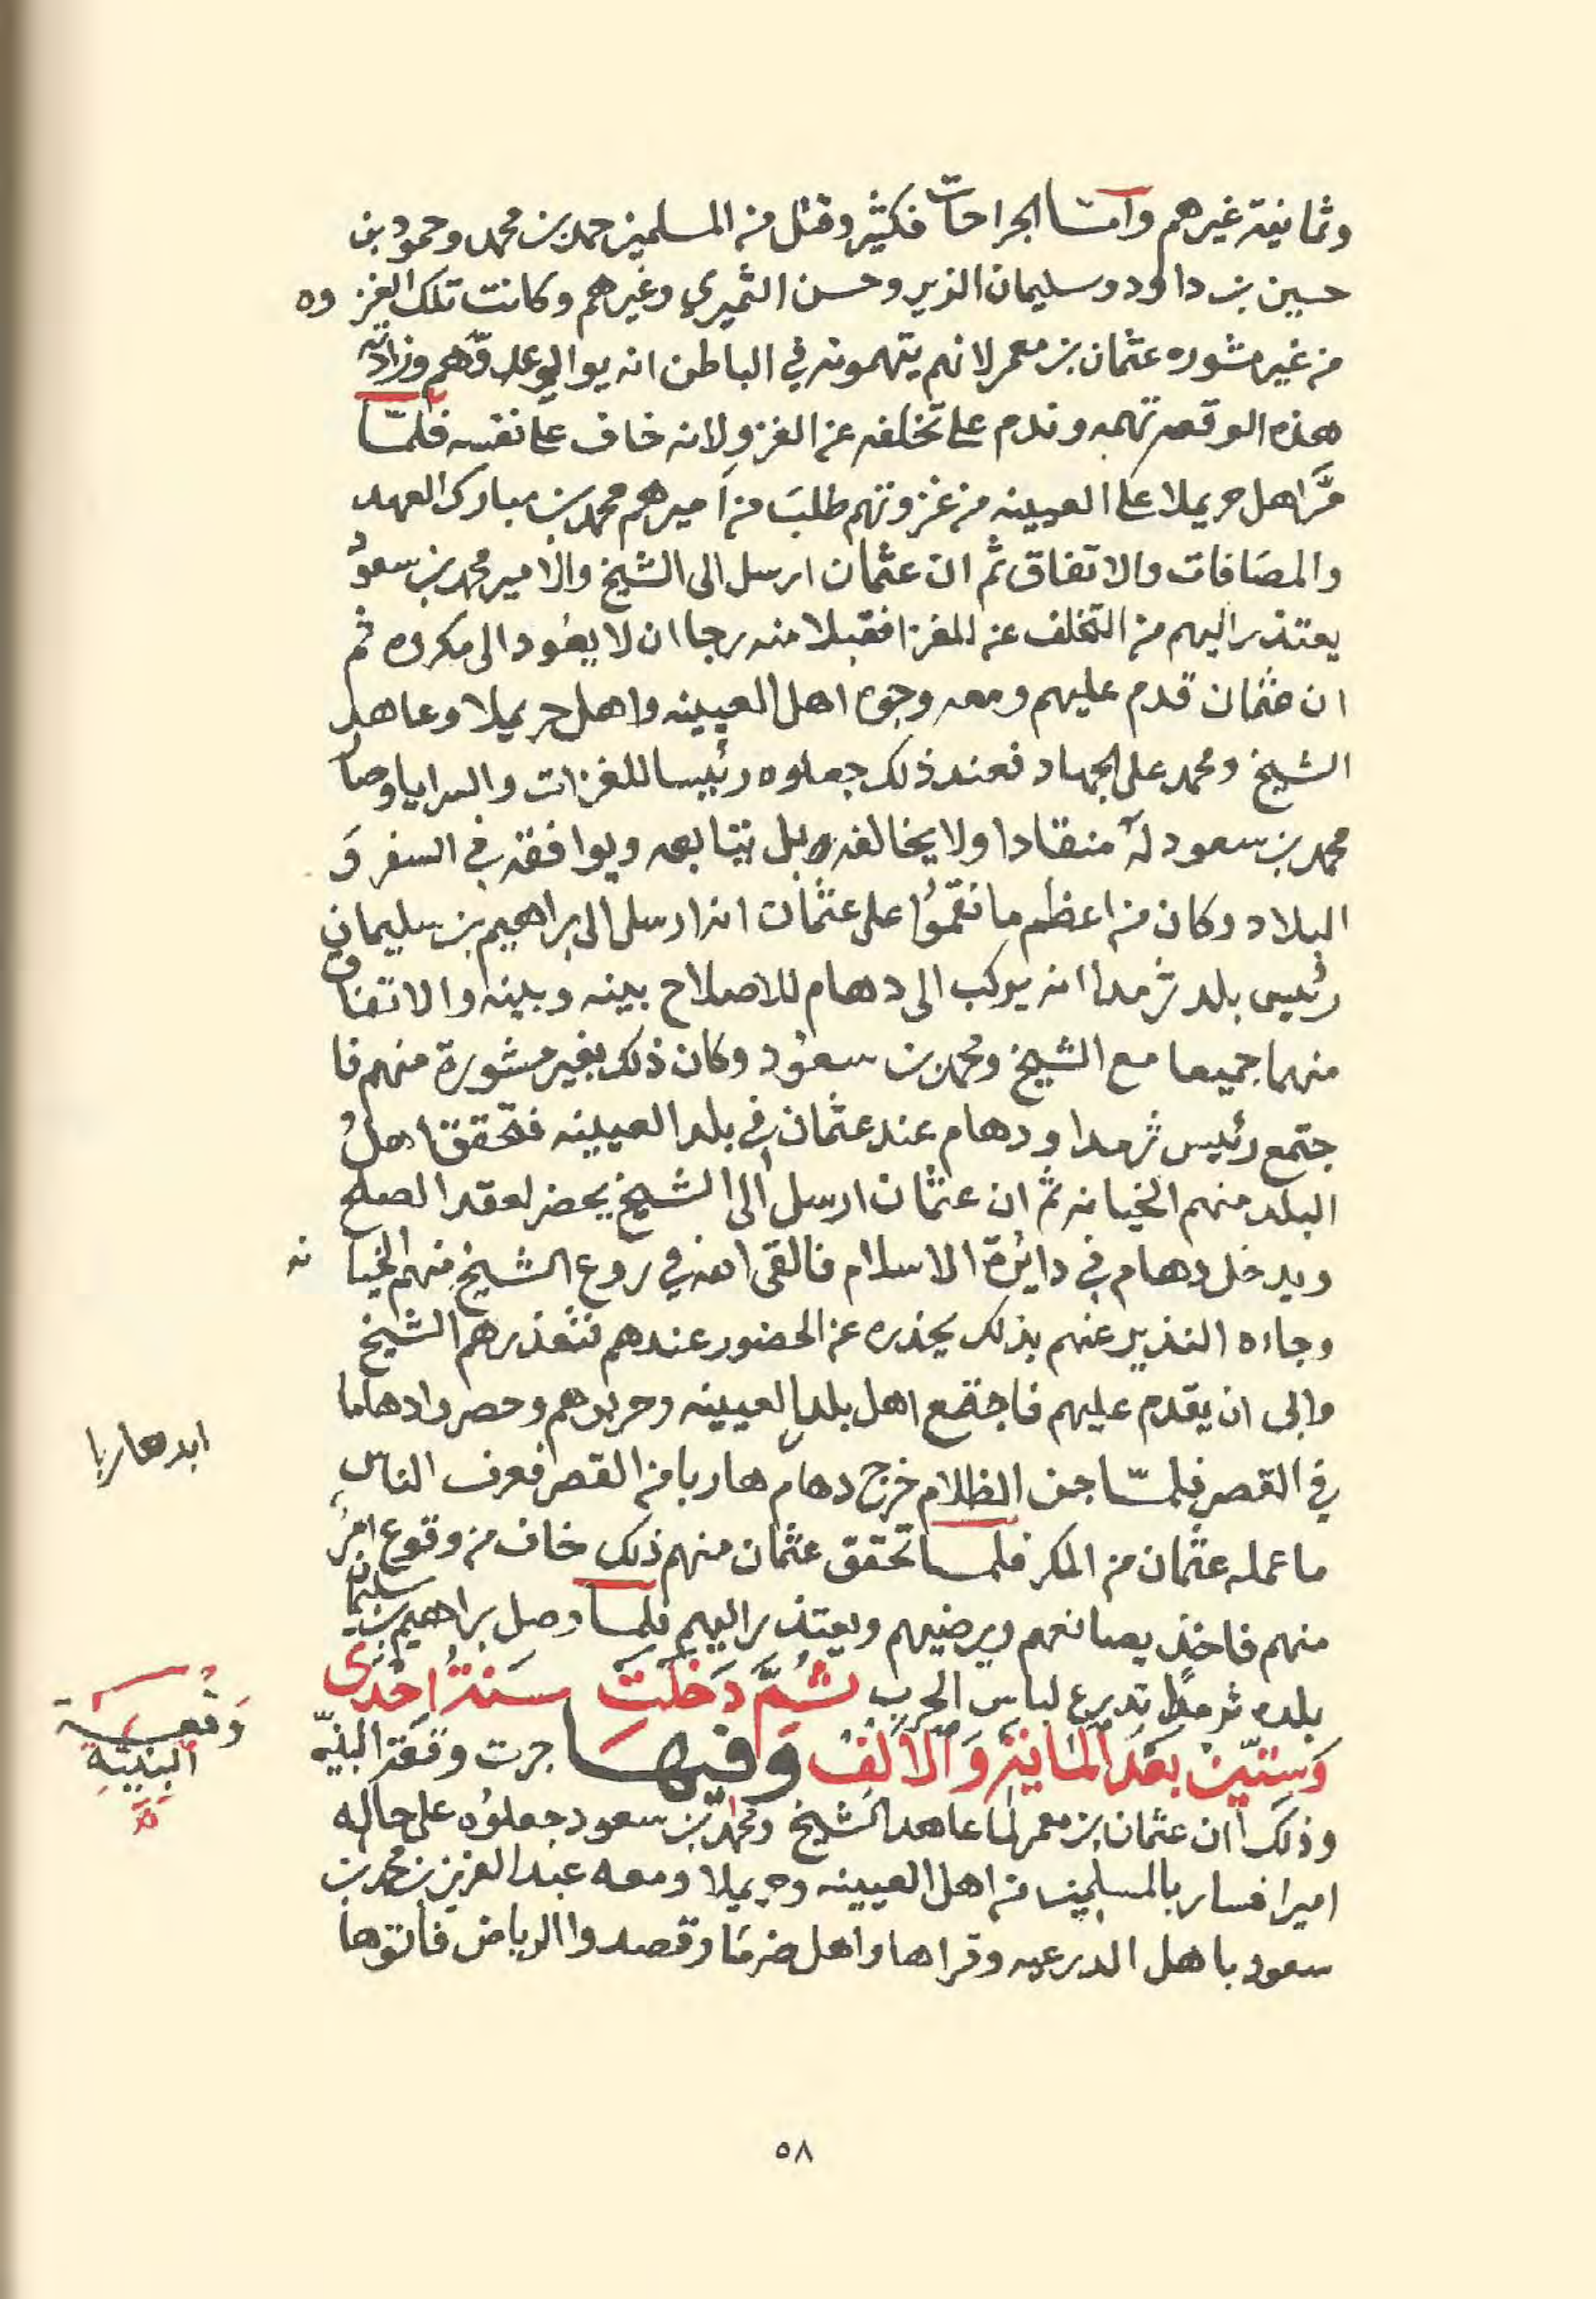 وثمانية غيرهم وامّا الجراحات فكثير وقتل من المسلمين حمد بن محمد وحمود بن
حسين بن داوود وسليمان الزير وحسن الثميري وغيرهم وكانت تلك الغزوه
من غير مشوره عثمان بن معمر لانهم يتهمونه في الباطن انه يوالي عدوّهم وزادته
هذه الوقعه تهمه وندم على تخلفه عن الغزو لانه خاف على نفسه فلمّا
مرَّ اهل حريملا على العيينه من غزوتهم طلب من اميرهم محمد بن مبارك العهد
والمصافات والاتفاق ثم ان عثمان ارسل الى الشيخ والامير محمد بن سعود
يعتذر اليهم من التخلف عن المغزا فقبلا منه رجا ان لا يعود الى مكروه ثم
ان عثمان قدم عليهم ومعه وجوه اهل العيينه واهل حريملا وعاهد
الشيخ ومحمد على الجهاد فعند ذلك جعلوه رئيسا للغزات والسرايا وصار
محمد بن سعود له منقادا ولا يخالفه بل يتابعه ويوافقه في السفر وَ
البلاد وكان من اعظم ما نقموا على عثمان انه ارسل الى براهيم بن سليمان
رئيس بلد ثرمدا انه يركب الى دهام للاصلاح بينه وبينه والاتفاق
منهما جميعا مع الشيخ ومحمد بن سعود وكان ذلك بغير مشورة منهم فا
جتمع رئيس ثرمدا ودهام عند عثمان في بلد العيينه فتحقق اهل
البلد منهم الخيانه ثم ان عثمان ارسل الى الشيخ يحضر لعقد الصلح
ويدخل دهام في دائرة الاسلام فالقى الله في روع الشيخ منهم الخيانه
وجاءه النذير عنهم بذلك يحذره عن الحضور عندهم فتعذرهم الشيخ
وابى ان يقدم عليهم فاجتمع اهل بلد العيينه وحربوهم وحصروا دهاما
في القصر فلمّا جن الظلام خرج دهام هاربا من القصر فعرف الناس
ابد هاربا
ما عمله عثمان من المكر فلمّا تحقق عثمان منهم ذلك خاف من وقوع امر
منهم فاخذ يصانعهم ويرضيهم ويعتذر اليهم فلما وصل براهيم بن سليمان
بلده ثرمدا تدرع لباس الحرب ثُمَّ دَخَلَتْ سَنَةُ احْدَى
وَسِتّين بَعْدَ المَاية وَالألف وَفيهَا جرت وقعة البنيّه
وَقْعَة
البَنيّة
وذلك ان عثمان بن معمر لما عاهد الشيخ ومحمد بن سعود جعلوه على حاله
اميرا فسار بالمسلمين من اهل العيينه وحريملا ومعه عبد العزيز بن محمد بن
سعود باهل الدرعيه وقراها واهل ضرما وقصدوا الرياض فأتوها
٥٨